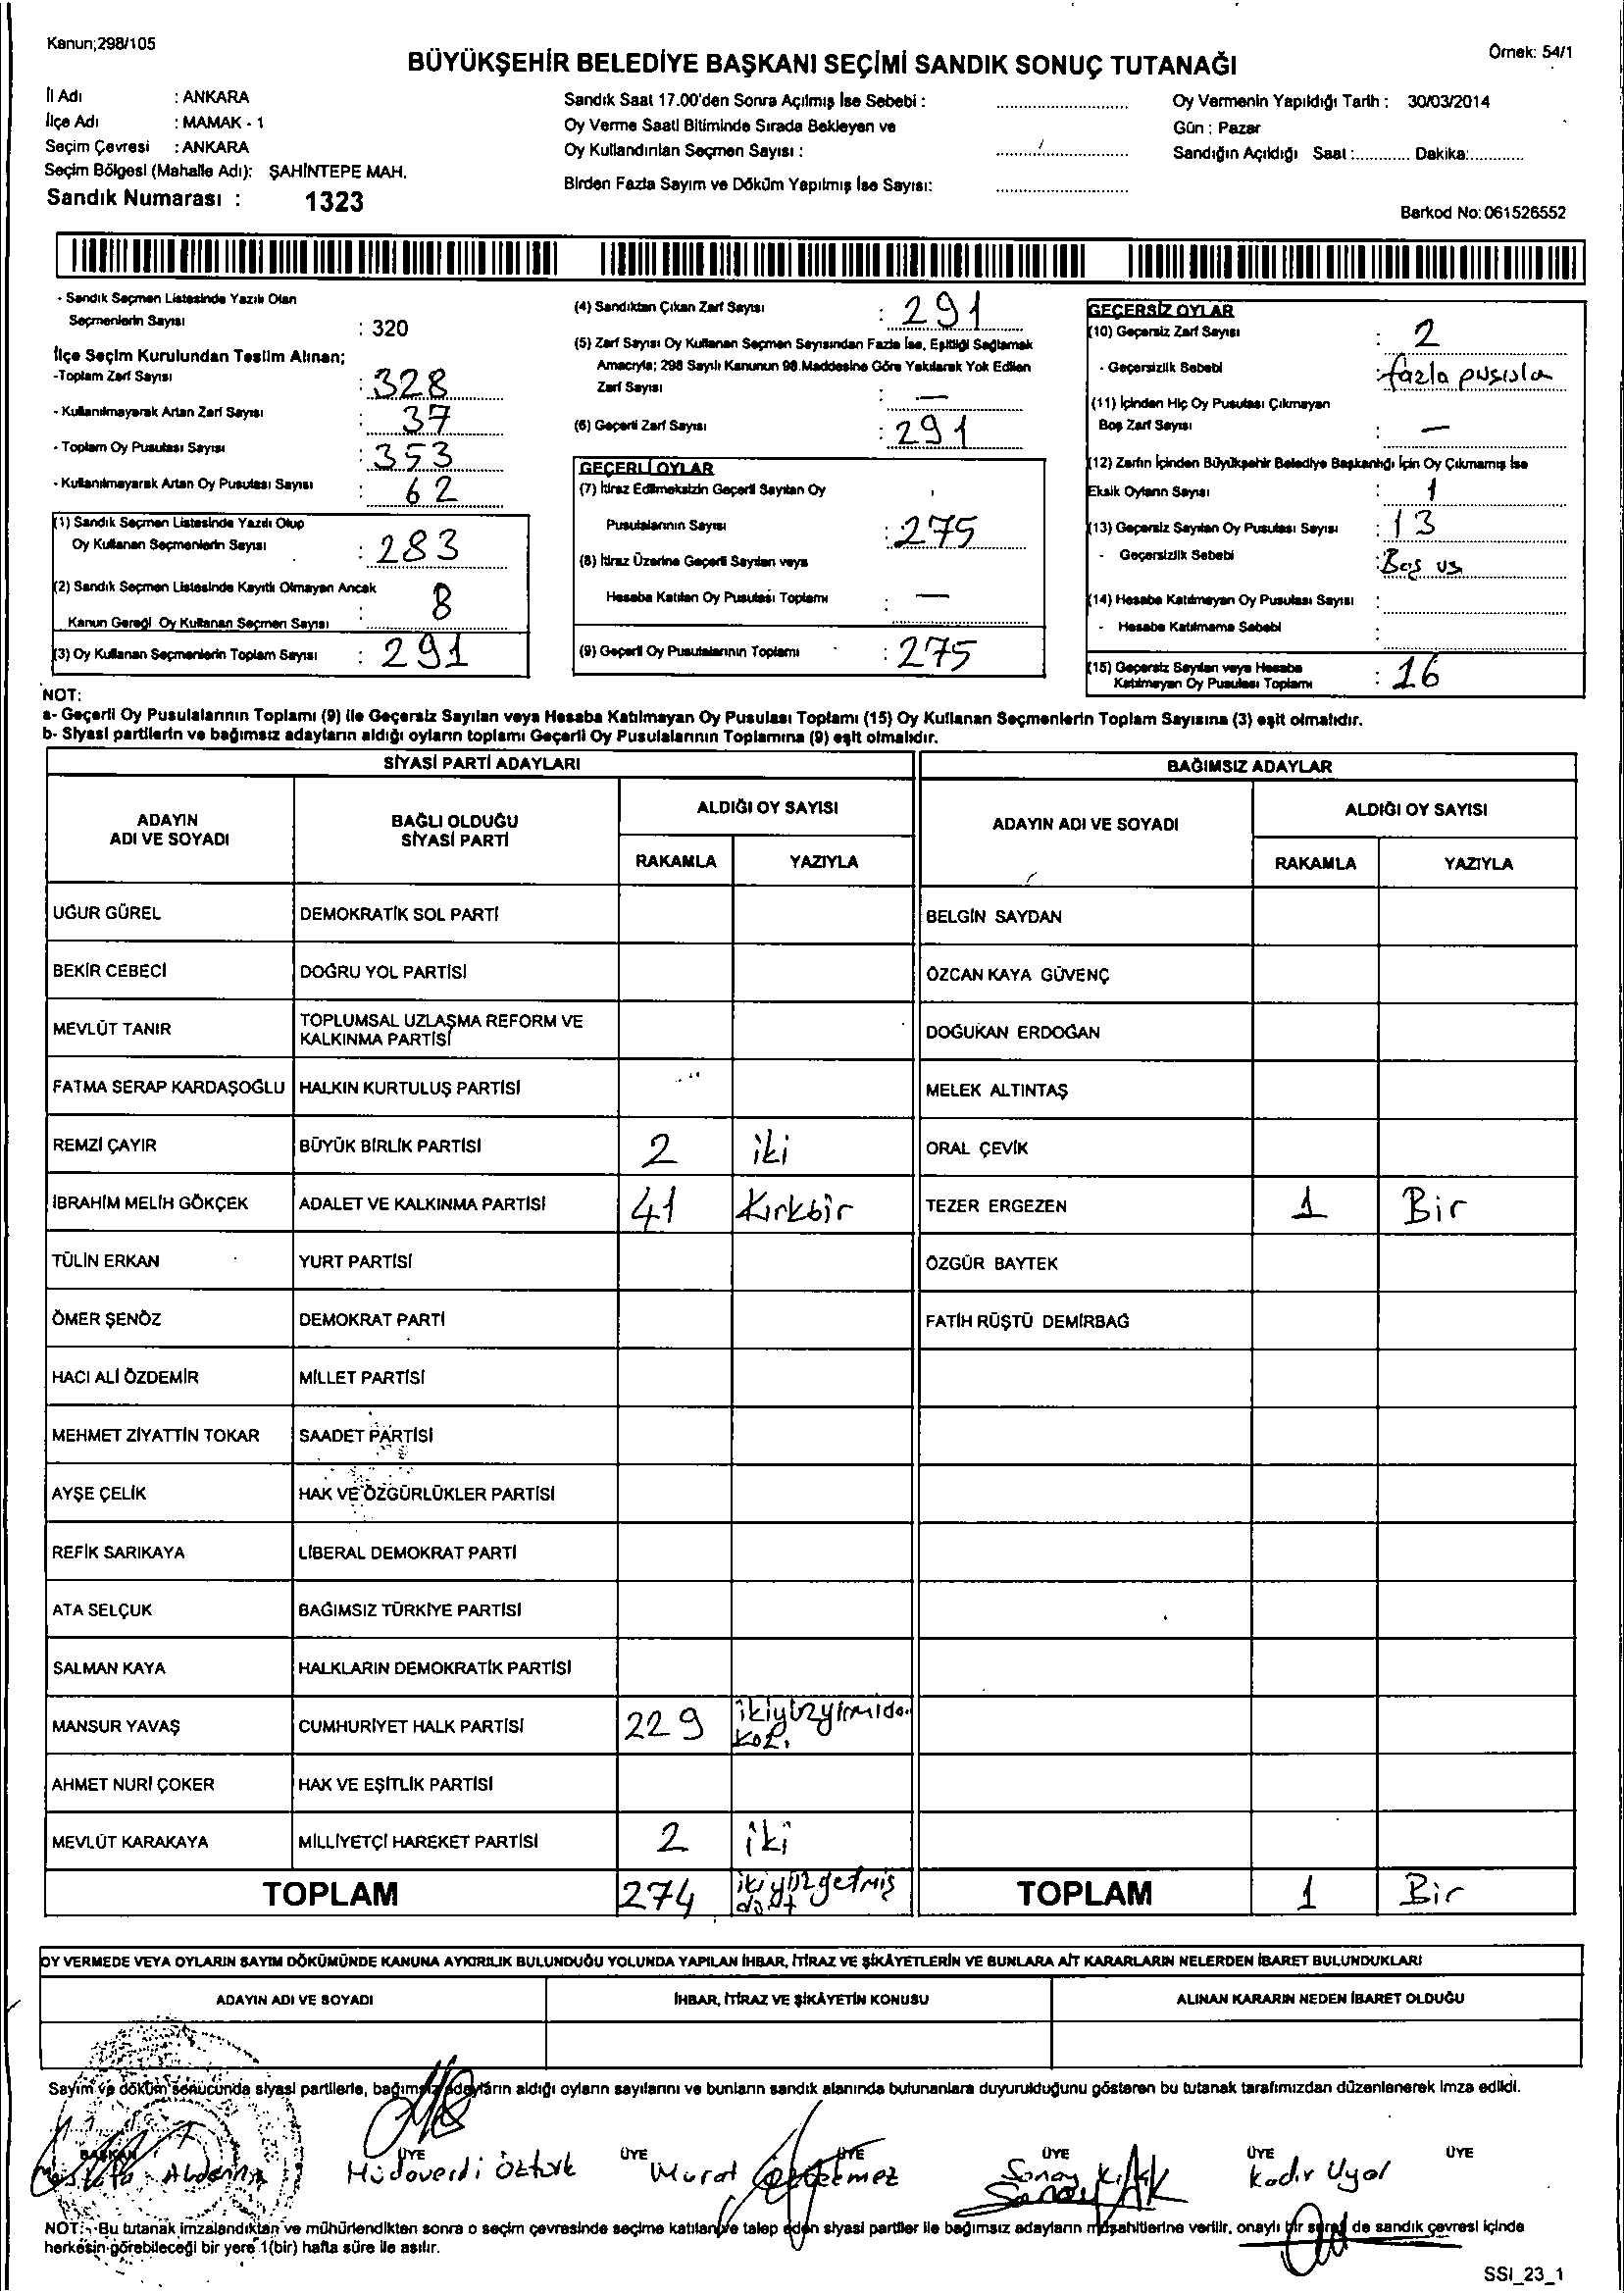 Kanun;298/105
BÜYÜKŞEHİR BELEDİYE BAŞKANI SEÇİMİ SANDIK SONUÇ TUTANAĞI
Örnek: 54/1
İl Adı : ANKARA
İlçe Adı : MAMAK - 1
Seçim Çevresi : ANKARA
Seçim Bölgesi (Mahalle Adı): ŞAHİNTEPE MAH.
Sandık Numarası : 1323
Sandık Saat 17.00'den Sonra Açılmış İse Sebebi :
Oy Verme Saati Bitiminde Sırada Bekleyen ve
Oy Kullandırılan Seçmen Sayısı :
Birden Fazla Sayım ve Döküm Yapılmış İse Sayısı:
Oy Vermenin Yapıldığı Tarih : 30/03/2014
Gün : Pazar
Sandığın Açıldığı Saat :............ Dakika:............
Barkod No: 061526552
- Sandık Seçmen Listesinde Yazılı Olan
Seçmenlerin Sayısı : 320
İlçe Seçim Kurulundan Teslim Alınan;
-Toplam Zarf Sayısı : 328
- Kullanılmayarak Artan Zarf Sayısı : 37
- Toplam Oy Pusulası Sayısı : 353
- Kullanılmayarak Artan Oy Pusulası Sayısı : 62
(1) Sandık Seçmen Listesinde Yazılı Olup
Oy Kullanan Seçmenlerin Sayısı : 283
(2) Sandık Seçmen Listesinde Kayıtlı Olmayan Ancak
Kanun Gereği Oy Kullanan Seçmen Sayısı : 8
(3) Oy Kullanan Seçmenlerin Toplam Sayısı : 291
(4) Sandıktan Çıkan Zarf Sayısı : 291
(5) Zarf Sayısı Oy Kullanan Seçmen Sayısından Fazla İse, Eşitliği Sağlamak
Amacıyla; 298 Sayılı Kanunun 98.Maddesine Göre Yakılarak Yok Edilen
Zarf Sayısı : —
(6) Geçerli Zarf Sayısı : 291
GEÇERLİ OYLAR
(7) İtiraz Edilmeksizin Geçerli Sayılan Oy
Pusulalarının Sayısı : 275
(8) İtiraz Üzerine Geçerli Sayılan veya
Hesaba Katılan Oy Pusulası Toplamı : —
(9) Geçerli Oy Pusulalarının Toplamı : 275
GEÇERSİZ OYLAR
(10) Geçersiz Zarf Sayısı : 2
- Geçersizlik Sebebi : fazla pusula
(11) İçinden Hiç Oy Pusulası Çıkmayan
Boş Zarf Sayısı : —
(12) Zarfın İçinden Büyükşehir Belediye Başkanlığı İçin Oy Çıkmamış İse
Eksik Oyların Sayısı : 1
(13) Geçersiz Sayılan Oy Pusulası Sayısı : 13
- Geçersizlik Sebebi : Boş vs
(14) Hesaba Katılmayan Oy Pusulası Sayısı :
- Hesaba Katılmama Sebebi :
(15) Geçersiz Sayılan veya Hesaba
Katılmayan Oy Pusulası Toplamı : 16
NOT:
a- Geçerli Oy Pusulalarının Toplamı (9) ile Geçersiz Sayılan veya Hesaba Katılmayan Oy Pusulası Toplamı (15) Oy Kullanan Seçmenlerin Toplam Sayısına (3) eşit olmalıdır.
b- Siyasi partilerin ve bağımsız adayların aldığı oyların toplamı Geçerli Oy Pusulalarının Toplamına (9) eşit olmalıdır.
SİYASİ PARTİ ADAYLARI
ADAYIN
ADI VE SOYADI
BAĞLI OLDUĞU
SİYASİ PARTİ
ALDIĞI OY SAYISI
RAKAMLA YAZIYLA
UĞUR GÜREL DEMOKRATİK SOL PARTİ
BEKİR CEBECİ DOĞRU YOL PARTİSİ
MEVLÜT TANIR TOPLUMSAL UZLAŞMA REFORM VE
KALKINMA PARTİSİ
FATMA SERAP KARDAŞOĞLU HALKIN KURTULUŞ PARTİSİ
REMZİ ÇAYIR BÜYÜK BİRLİK PARTİSİ 2 iki
İBRAHİM MELİH GÖKÇEK ADALET VE KALKINMA PARTİSİ 41 Kırkbir
TÜLİN ERKAN YURT PARTİSİ
ÖMER ŞENÖZ DEMOKRAT PARTİ
HACI ALİ ÖZDEMİR MİLLET PARTİSİ
MEHMET ZİYATTİN TOKAR SAADET PARTİSİ
AYŞE ÇELİK HAK VE ÖZGÜRLÜKLER PARTİSİ
REFİK SARIKAYA LİBERAL DEMOKRAT PARTİ
ATA SELÇUK BAĞIMSIZ TÜRKİYE PARTİSİ
SALMAN KAYA HALKLARIN DEMOKRATİK PARTİSİ
MANSUR YAVAŞ CUMHURİYET HALK PARTİSİ 229 ikiyüzyirmido
koz.
AHMET NURİ ÇOKER HAK VE EŞİTLİK PARTİSİ
MEVLÜT KARAKAYA MİLLİYETÇİ HAREKET PARTİSİ 2 iki
TOPLAM 274 ikiyüzyetmiş
dört
BAĞIMSIZ ADAYLAR
ADAYIN ADI VE SOYADI
ALDIĞI OY SAYISI
RAKAMLA YAZIYLA
BELGİN SAYDAN
ÖZCAN KAYA GÜVENÇ
DOĞUKAN ERDOĞAN
MELEK ALTINTAŞ
ORAL ÇEVİK
TEZER ERGEZEN 1 Bir
ÖZGÜR BAYTEK
FATİH RÜŞTÜ DEMİRBAĞ
TOPLAM 1 Bir
OY VERMEDE VEYA OYLARIN SAYIM DÖKÜMÜNDE KANUNA AYKIRILIK BULUNDUĞU YOLUNDA YAPILAN İHBAR, İTİRAZ VE ŞİKÂYETLERİN VE BUNLARA AİT KARARLARIN NELERDEN İBARET BULUNDUKLARI
ADAYIN ADI VE SOYADI
İHBAR, İTİRAZ VE ŞİKÂYETİN KONUSU
ALINAN KARARIN NEDEN İBARET OLDUĞU
Sayım ve döküm sonucunda siyasi partilerle, bağımsız adayların aldığı oyların sayılarını ve bunların sandık alanında bulunanlara duyurulduğunu gösteren bu tutanak tarafımızdan düzenlenerek imza edildi.
BAŞKAN ÜYE ÜYE ÜYE ÜYE ÜYE ÜYE
Hüdaverdi Öztürk Murat Sonay Kadir Uyar
NOT: Bu tutanak imzalandıktan ve mühürlendikten sonra o seçim çevresinde seçime katılan ve talep eden siyasi partiler ile bağımsız adayların müşahitlerine verilir, onaylı bir sureti de sandık çevresi içinde
herkesin görebileceği bir yere 1(bir) hafta süre ile asılır.
SSI_23_1